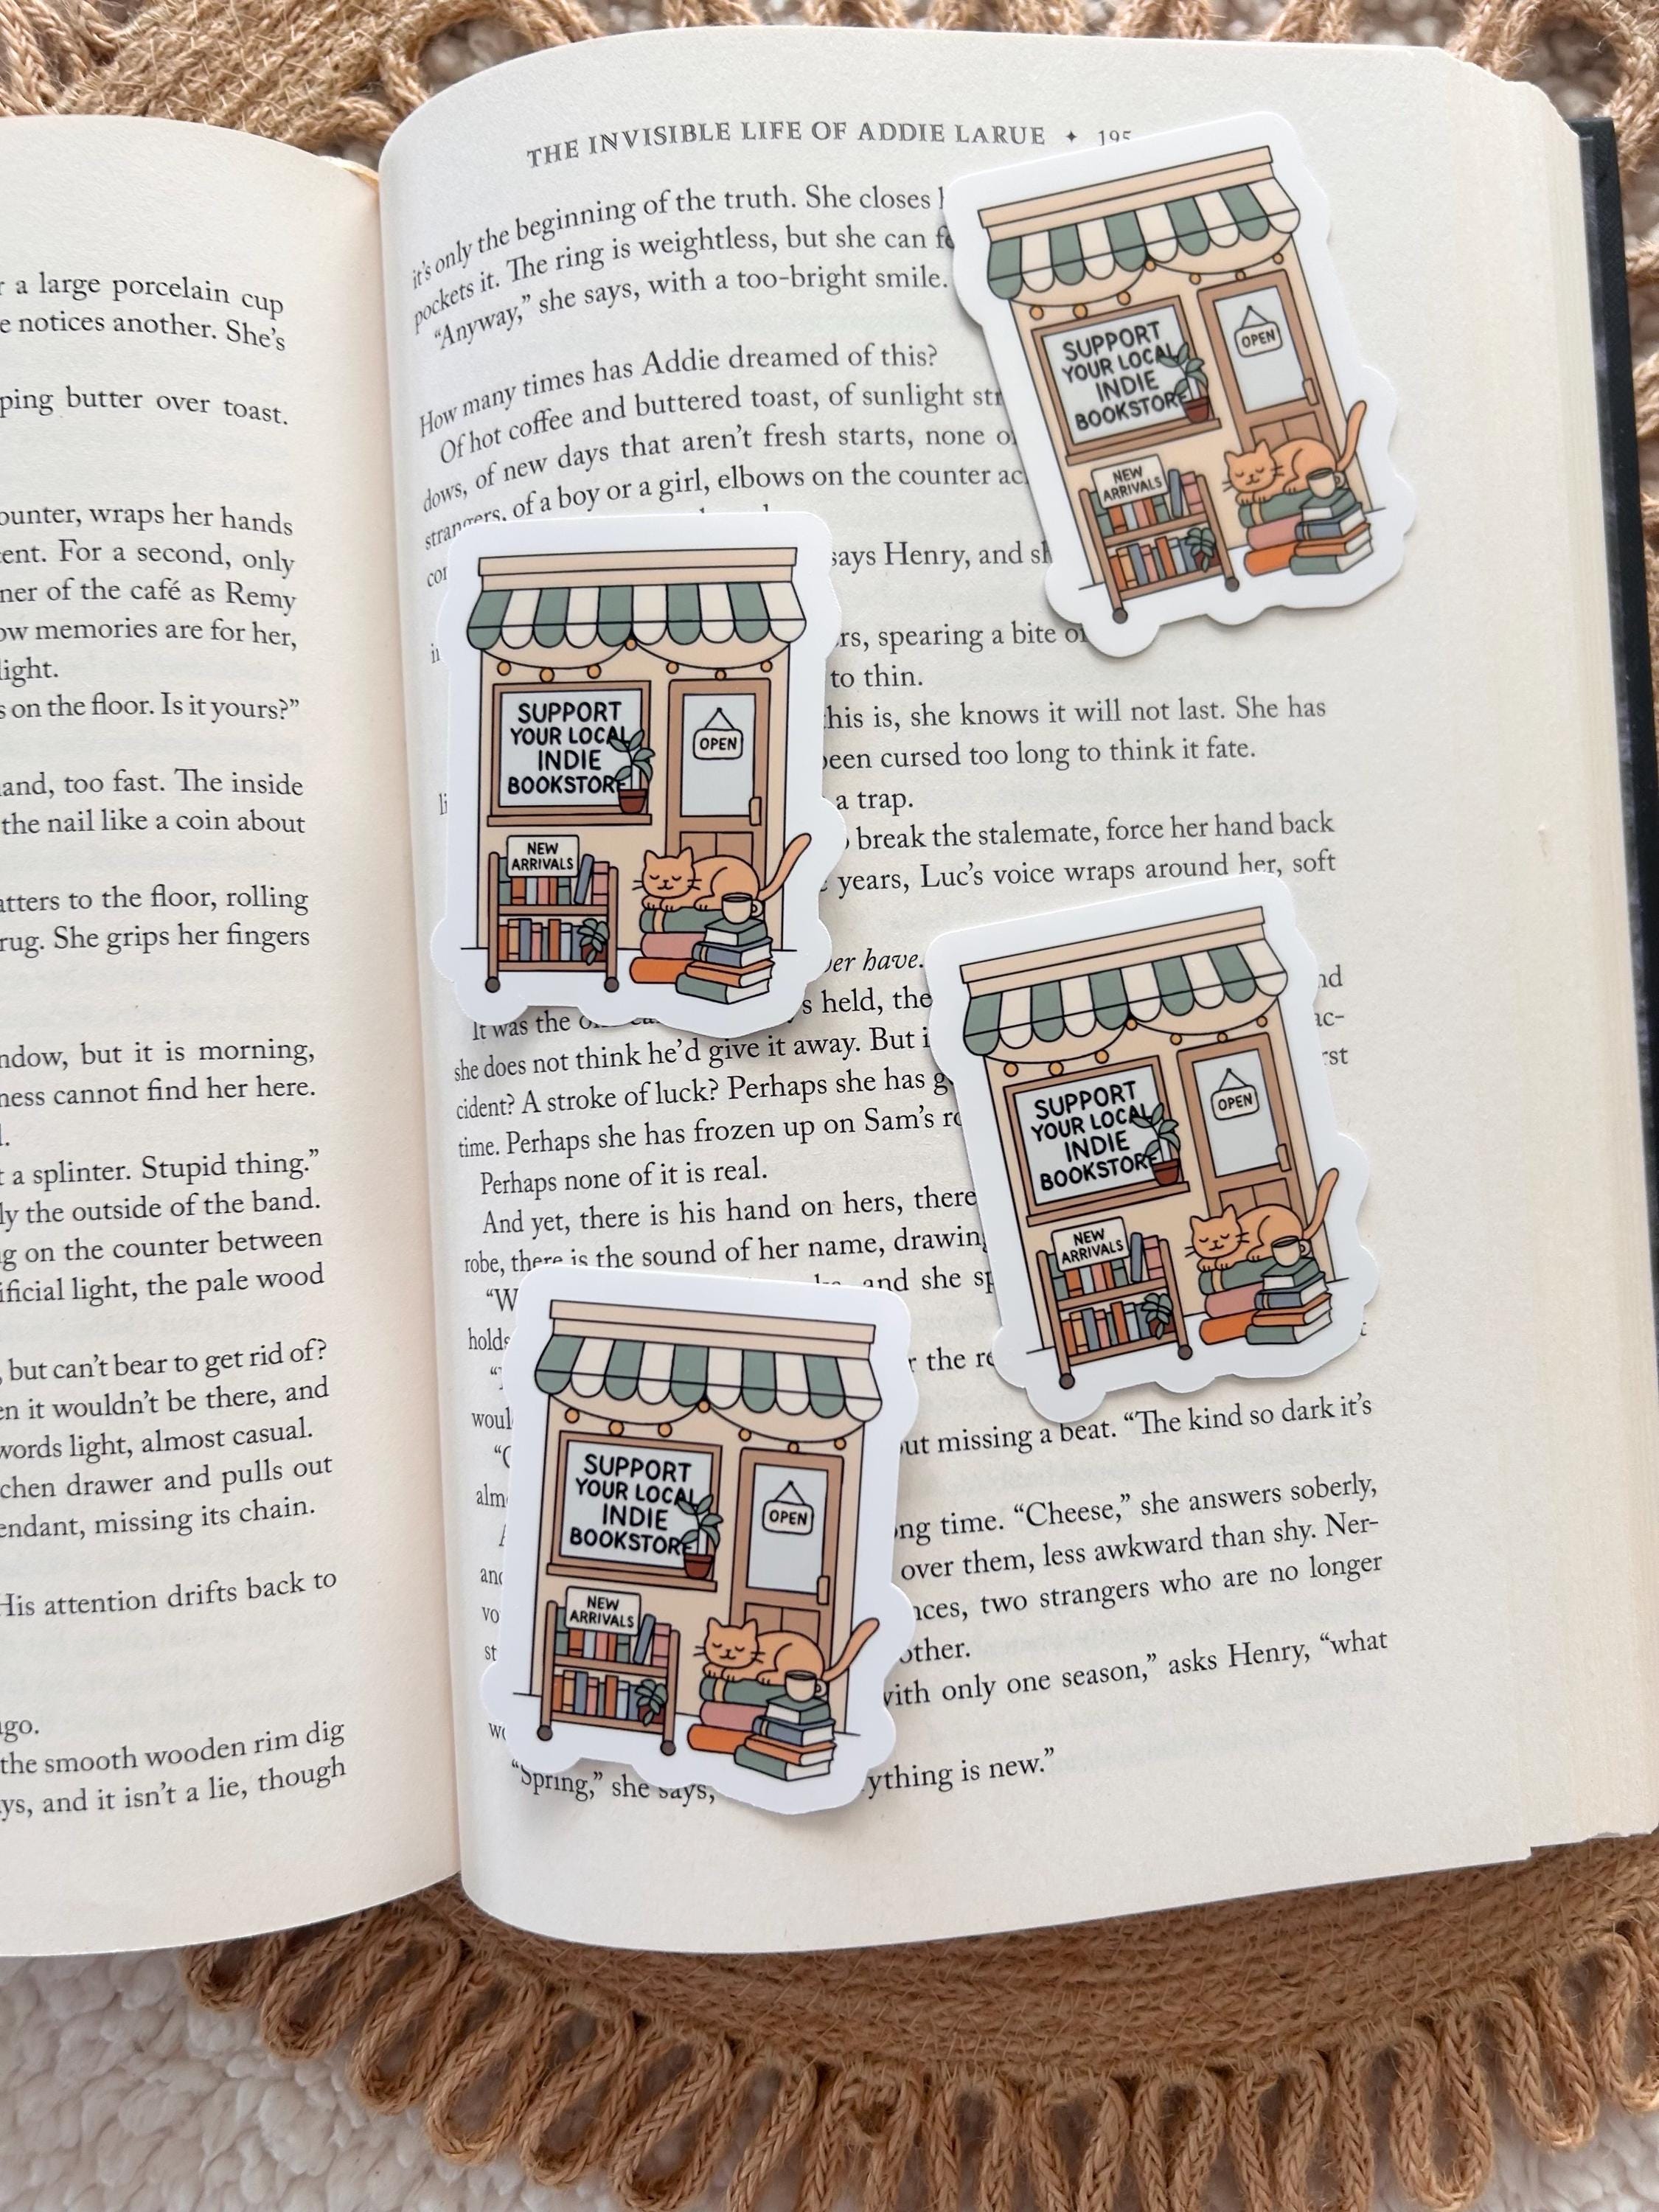 r a large porcelain cup
e notices another. She's
ping butter over toast.
ounter, wraps her hands
ent. For a second, only
ner of the café as Remy
ow memories are for her,
light.
s on the floor. Is it yours?”
and, too fast. The inside
the nail like a coin about
atters to the floor, rolling
rug. She grips her fingers
ndow, but it is morning,
ness cannot find her here.
t a splinter. Stupid thing.”
ly the outside of the band.
g on the counter between
ificial light, the pale wood
, but can't bear to get rid of?
en it wouldn't be there, and
words light, almost casual.
chen drawer and pulls out
endant, missing its chain.
His attention drifts back to
ago.
the smooth wooden rim dig
ys, and it isn't a lie, though
THE INVISIBLE LIFE OF ADDIE LARUE ✦ 195
it's only the beginning of the truth. She closes
pockets it. The ring is weightless, but she can
“Anyway,” she says, with a too-bright smile.
How many times has Addie dreamed of this?
Of hot coffee and buttered toast, of sunlight str
dows, of new days that aren't fresh starts, none o
strangers, of a boy or a girl, elbows on the counter ac
says Henry, and sh
rs, spearing a bite o
to thin.
this is, she knows it will not last. She has
been cursed too long to think it fate.
a trap.
break the stalemate, force her hand back
years, Luc's voice wraps around her, soft
ver have.
It was the
s held, the
nd
she does not think he'd give it away. But i
ac-
cident? A stroke of luck? Perhaps she has g
rst
time. Perhaps she has frozen up on Sam's ro
Perhaps none of it is real.
And yet, there is his hand on hers, there
robe, there is the sound of her name, drawing
“W
and she sp
holds
r the re
woul
out missing a beat. “The kind so dark it's
alm
ong time. “Cheese,” she answers soberly,
over them, less awkward than shy. Ner-
nces, two strangers who are no longer
other.
with only one season,” asks Henry, “what
“Spring,” she says,
ything is new.”
SUPPORT
YOUR LOCAL
INDIE
BOOKSTORE
OPEN
NEW
ARRIVALS
SUPPORT
YOUR LOCAL
INDIE
BOOKSTORE
OPEN
NEW
ARRIVALS
SUPPORT
YOUR LOCAL
INDIE
BOOKSTORE
OPEN
NEW
ARRIVALS
SUPPORT
YOUR LOCAL
INDIE
BOOKSTORE
OPEN
NEW
ARRIVALS